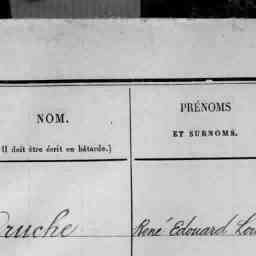 NOM.
Il doit être écrit en bâtarde.)
PRÉNOMS
ET SURNOMS.
René Edouard